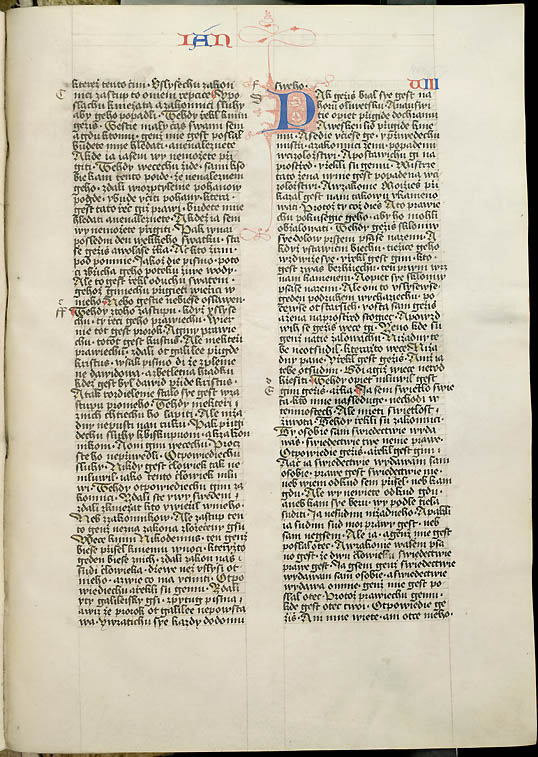 IAN
VIII
kterez tento cini · Uslyssechu zakon
nici zastup to o niem repcice · Ypo
slachu kniezata azakonnici sluhy
aby geho popadli · Tehdy rzekl gim
gezis · Gestie maly czas swami sem
agdu ktomu · genz mne gest poslal
budete mne hledati · anenaleznete
Akde ia iasem wy nemozete przi
giti · Tehdy wecechu zide · sami kso
bie kam tento poide · ze nenaleznem
geho · zdali wrozptylenie pohanow
pogde · ybude vciti pohany · ktera
gest tato rzec giz prawi · budete mne
hledati anenaleznete · Akdez ia sem
wy nemozete przigiti · Pak wnai
posledni den welikeho swatku · sta
se gezis awolase rzka · Ac kto zizni ·
pod pomnie · Jakoz die pismo · poto
ci zbrzicha geho poteku zive wody ·
Ale to gest rzekl oduchu swatem ·
gehoz gmiechu prigieci wierzici w
nieho · Nebo gestie nebiese oslawen ·
Tehdy ztoho zastupu · kdyz vslysse
chu · ty rzeci geho prawiechu · Wier
nie tot gest prorok · A giny prawie
chu · totot gest kristus · Ale niekterzi
prawiechu · zdali ot galilee przigde
kristus · wsak pismo di ze zplemene
ne dawidowa · abetlema hradku
kdez gest byl dawid przide kristus ·
A tak rozdielenie stalo se gest wza
stupu proneho · Tehdy niekterzi z
nich chtiechu ho lapiti · Ale niza
dny nepusti nan ruku · Pak przi
dechu sluhy kbiskupom · akzakon
nikom · A oni gim wecechu · Proc
ste ho neprziwedli · Otpowiediechu
sluhy · Nikdy gest clowiek tak ne
mluwil · iako tento clowiek mlu
wi · Tehdy otpowiediechu gim za
konnici · Zdali ste y wy swedeni ·
zdali kniezat kto vwierzil wnieho ·
Neb zzakonnikow · Ale zastup ten
to genz nezna zakona zlorzeceny gsu
Wece knim Nikodemus · ten genz
biese przisel kniemu wnoci · kteryzto
geden biese znich · zdali zakon nas
sudi clowieka · drzewe nez vslyssi ot
nieho · a wie co ma vciniti · Otpo
wiediechu arzekli su gemu · Zdali
y ty galileisky gsi · zpytug pisma ·
a wiz ze prorok ot galilee nepowsta
wa · Ywratichu sye kazdy dodomu
sweho ·
Pak gezis bral sye gest na
horu oliwetsku · Anautrzi
cie opiet przigide dochramu
A wessken lid przigide knie
mu · A sedie vciese ge · y prziwedechu
mistrzi · azakonnici zenu · popadenu
wcizolozstwi · A postawichu gi na
prostrzed · yrzekli su gemu · Mistrze
tato zena nynie gest popadena wci
zolozstwi · Awzakonie Moizies przi
kazal gest nam takowu vkameno
wati · Protoz ty coz dies · A to prawie
chu pokusegic geho · aby ho mohli
obzalowati · Tehdy gezis skloniw
sye dolow prstem psase nazemi · A
kdyz vstawicni biechu · tiezic geho
wzdwize sye · yrzekl gest gim · kto
gest zwas bezhriechu · ten prwni wrz
nani kamenem · Aopiet sye skloniw
psase nazemi · Ale oni to vslysewse ·
geden podruhem wychaziechu · po
cewse ot starsich · yosta sam gezis
azena naprostrzed stogiec · Apowzd
wih se gezis wece gi · Zeno kde su
genz natie zalowachu · Nizadny te
be neotsudil · kterazto wece · Niza
dny pane · Yrzekl gest gezis · Ani ia
tebe otsudim · Gdi agiz wiece nerod
hresiti · Tehdy opiet mluwil gest
gim gezis · arzka · Ja sem swietlo swie
ta · kto mne nasleduge · nechodi w
temnostech · Ale mieti swietlost
zivota · Tehdy rzekli su zakonnici ·
Ty osobie sam swiedectwie wyda
was · swiedectwie twe nenie prawe ·
Otpowiedie gezis · arzekl gest gim ·
A ac ia swiedectwie wydawam sam
osobie · prawe gest swiedectwie me ·
neb wiem otkud sem prisel · neb kam
gdu · Ale wy newiete odkud gdu ·
aneb kam sye beru · wy podle tiela
sudite · Ja nesudim nizadneho · Apakli
ia sudim sud moi prawy gest · neb
sam negsem · Ale ia · agenz mne gest
poslal otec · Awzakonie wasem psa
no gest · ze dwu clowieku swiedectwie
prawe gest · Ja gsem genz swiedectwie
wydawam sam osobie · aswiedectwie
wydawa omne · genz mne gest po
slal otec · Protoz prawiechu gemu ·
kde gest otec twoi · Otpowiedie ge
zis · Ani mne wiete · ani otce meho ·